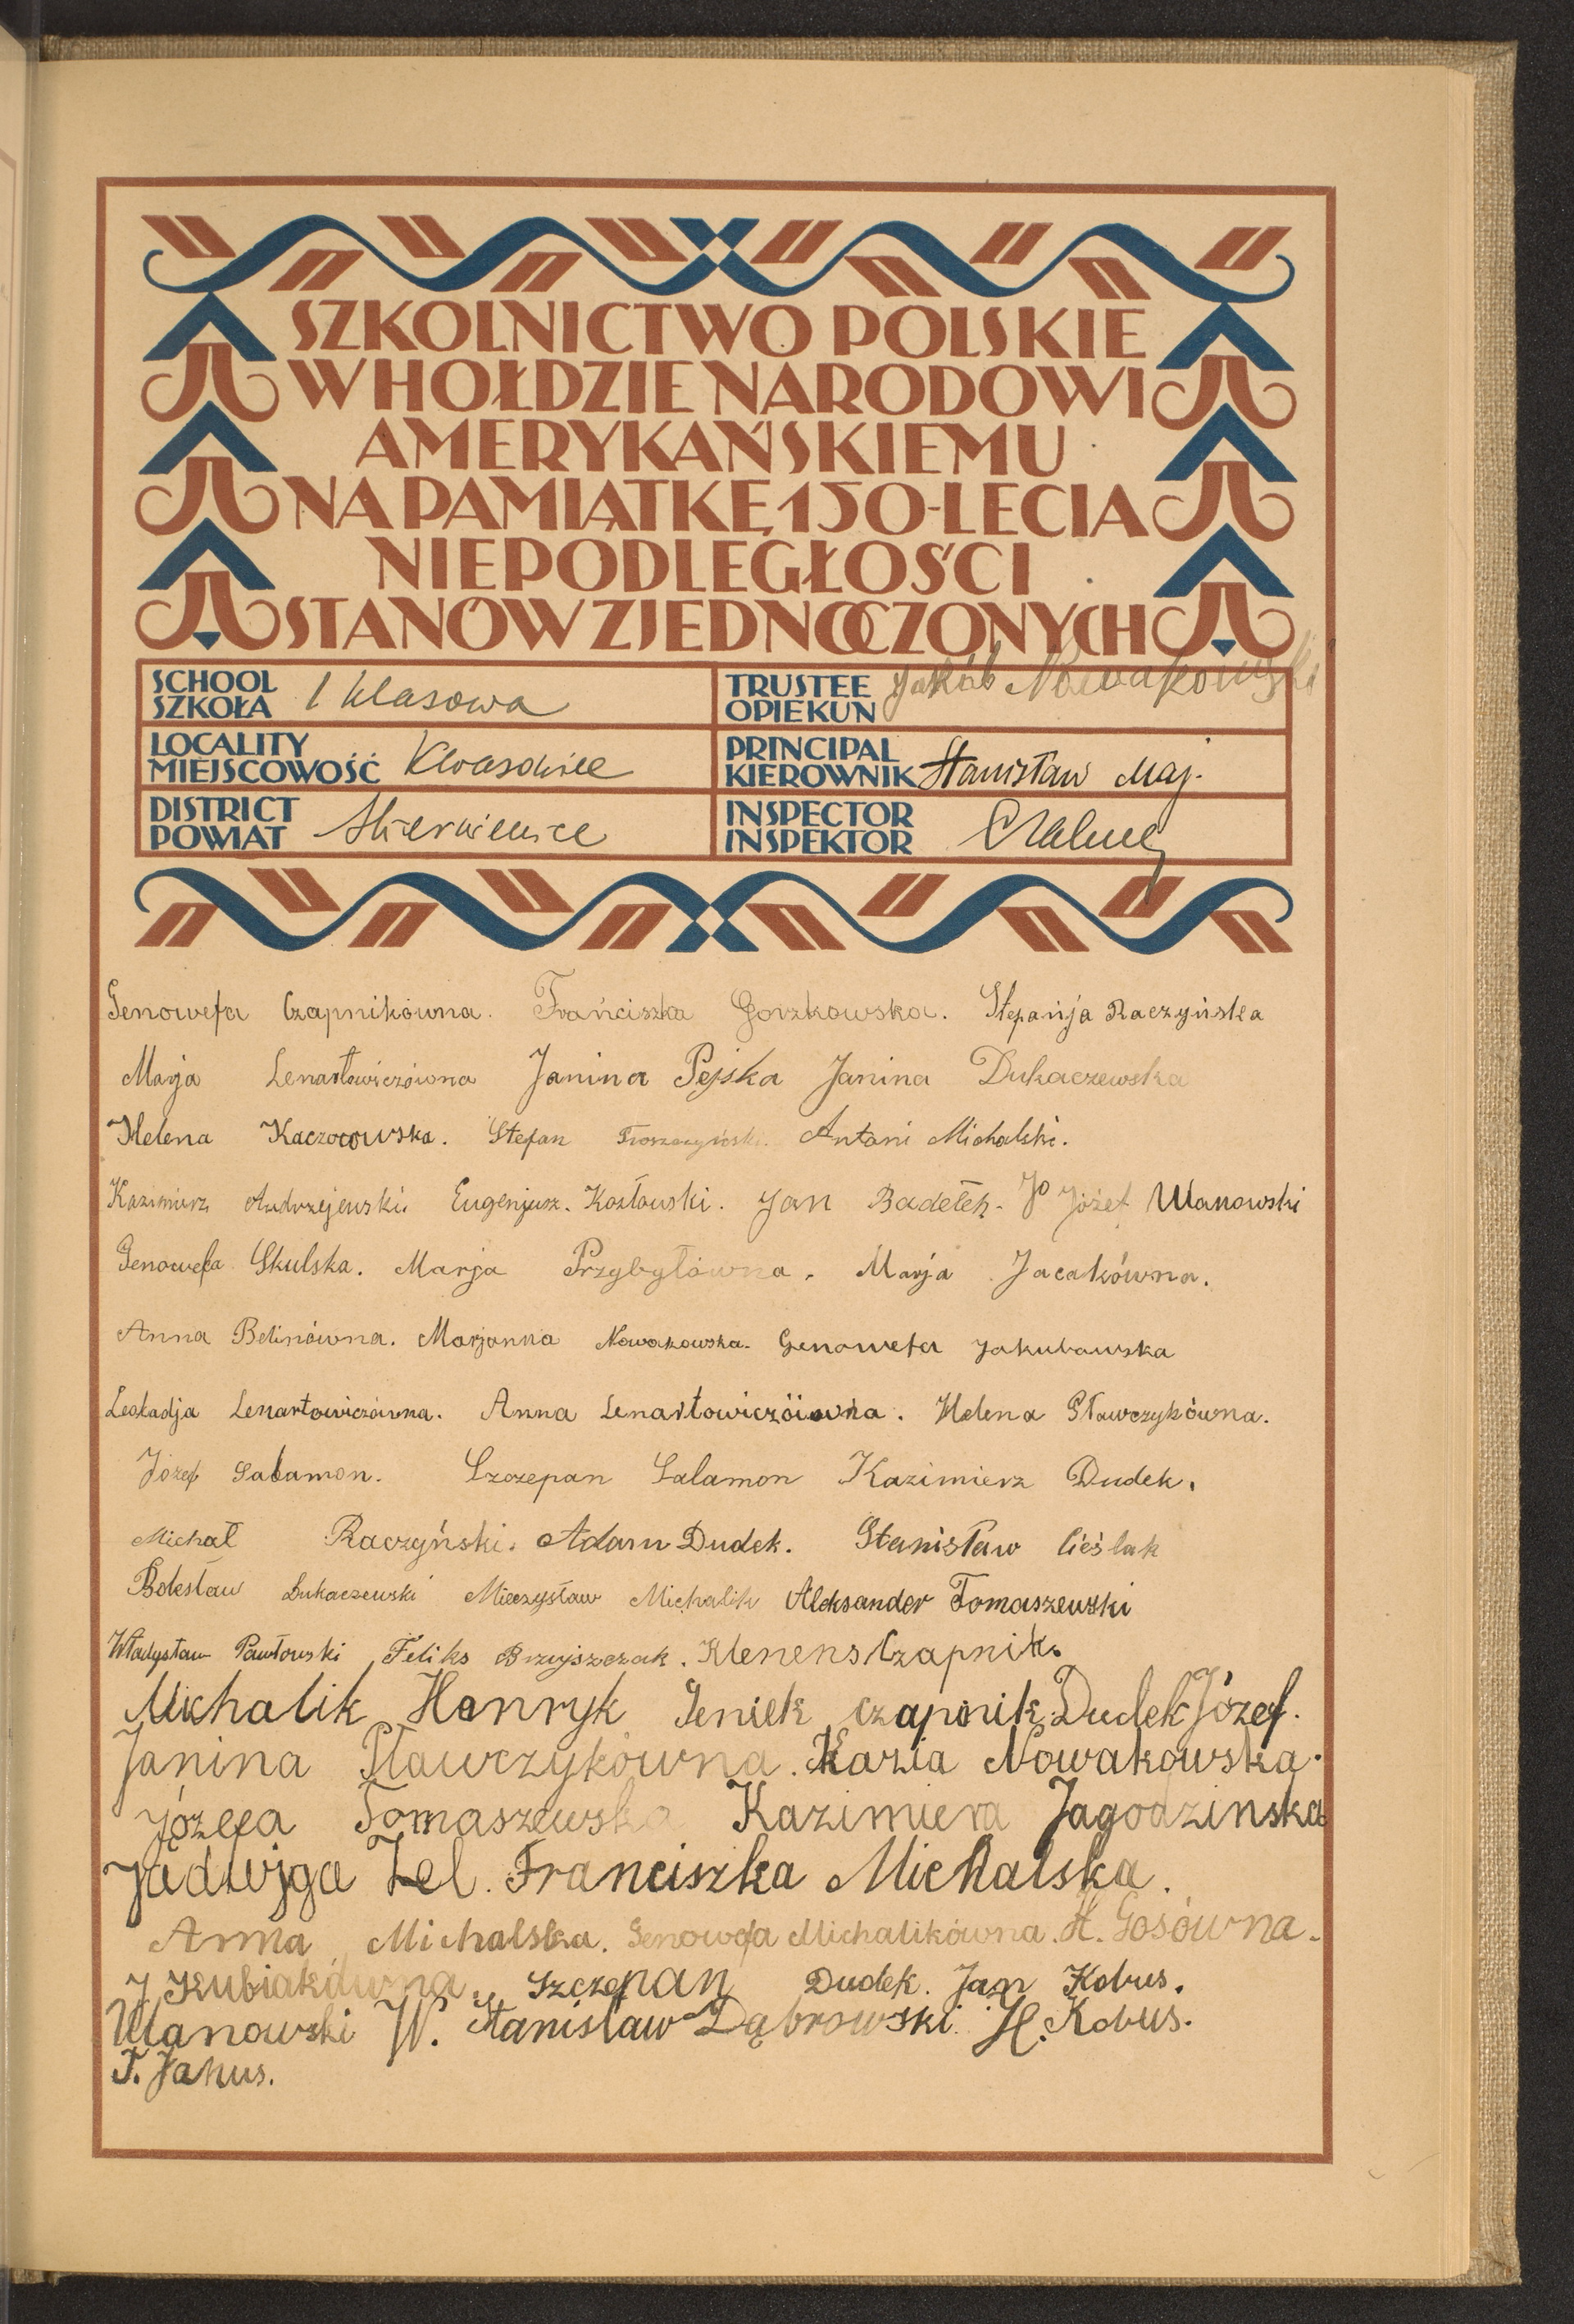 SZKOLNICTWO POLSKIE
W HOŁDZIE NARODOWI
AMERYKAŃSKIEMU
NA PAMIĄTKĘ 150-LECIA
NIEPODLEGŁOŚCI
STANÓW ZJEDNOCZONYCH
SCHOOL SZKOŁA 1 klasowa
TRUSTEE OPIEKUN Jakób Nowakowski
LOCALITY MIEJSCOWOŚĆ Kwasowiec
PRINCIPAL KIEROWNIK Stanisław Maj.
DISTRICT POWIAT Skierniewice
INSPECTOR INSPEKTOR
Genowefa Czapnikówna. Frańciszka Gorzkowska. Stefańja Raczyńska
Marja Lenartowiczówna Janina Pejska Janina Dukaczewska
Helena Kaczorowska. Stefan Antoni Michalski.
Kazimierz Andrzejewski. Eugenjusz. Kozłowski. Jan Badełek. Jó Józef Ulanowski
Genowefa Skulska. Marja Przybyłówna. Marja Jacakówna.
Anna Belinówna. Marjanna Nowakowska. Genowefa Jakubowska
Leokadja Lenartowiczówna. Anna Lenartowiczówna. Helena Pławczykówna.
Józef Salamon. Szczepan Salamon Kazimierz Dudek.
Michał Raczyński. Adam Dudek. Stanisław Cieślak
Bolesław Dukaczewski Mieczysław Michalik Aleksander Tomaszewski
Władysław Pawłowski Feliks Brzyjszczak. Klenens Czapnik.
Michalik Henryk Geniek czapnik Dudek Józef.
Janina Pławczykówna. Kazia Nowakowska.
Józefa Tomaszewska Kazimiera Jagodzinska
Jadwiga Lel. Franciszka Michalska.
Anna Michalska. Genowefa Michalikówna. H. Gosówna.
J Kubiakówna. Szczepan Dudek. Jan Kobus.
Ulanowski W. Stanisław Dąbrowski. H. Kobus.
T. Janus.